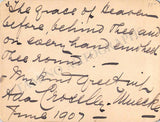 "The grace of Heaven
before, behind thee and
on every hand enwheel
thee round! —
Kindest Greeting
Ada Crossley Muecke
June 1907 —